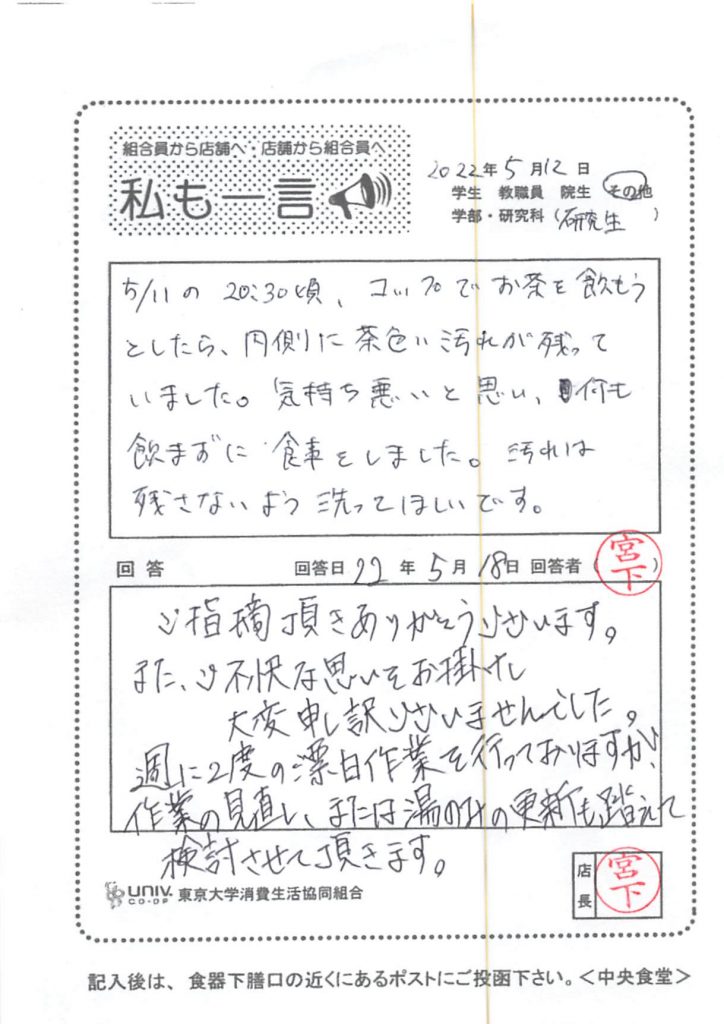 組合員から店舗へ・店舗から組合員へ
私も一言
2022年5月12日
学生 教職員 院生 その他
学部・研究科(研究生)
5/11の 20:30頃、コップでお茶を飲もう
としたら、内側に茶色い汚れが残って
いました。気持ち悪いと思い、何も
飲まずに食事をしました。汚れは
残さないよう洗ってほしいです。
回答 回答日 22年5月18日 回答者(宮下)
ご指摘頂きありがとうございます。
また、ご不快な思いをお掛けし
大変申し訳ございませんでした。
週に2度の漂白作業を行っておりますが、
作業の見直し、または湯のみの更新も踏えて
検討させて頂きます。
UNIV. CO-OP 東京大学消費生活協同組合
店長 宮下
記入後は、食器下膳口の近くにあるポストにご投函下さい。<中央食堂>